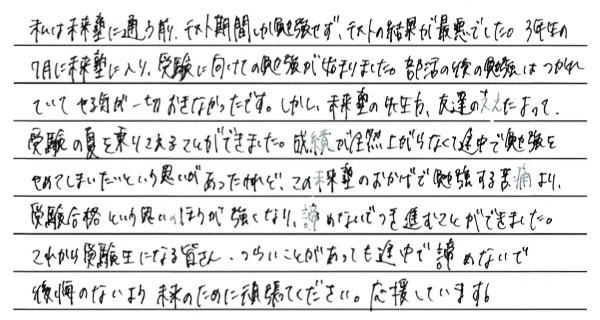 私は未来塾に通う前、テスト期間しか勉強せず、テストの結果が最悪でした。3年生の
7月に未来塾に入り、受験に向けての勉強が始まりました。部活の後の勉強はつかれ
ていてやる気が一切おきなかったです。しかし、未来塾の先生方、友達の支えによって、
受験の夏を乗りこえることができました。成績が全然上がらなくて途中で勉強を
やめてしまいたいという思いがあったけれど、この未来塾のおかげで勉強する苦痛より、
受験合格という思いのほうが強くなり、諦めないでつき進むことができました。
これから受験生になる皆さん、つらいことがあっても途中で諦めないで
後悔のないよう未来のために頑張ってください。応援しています!